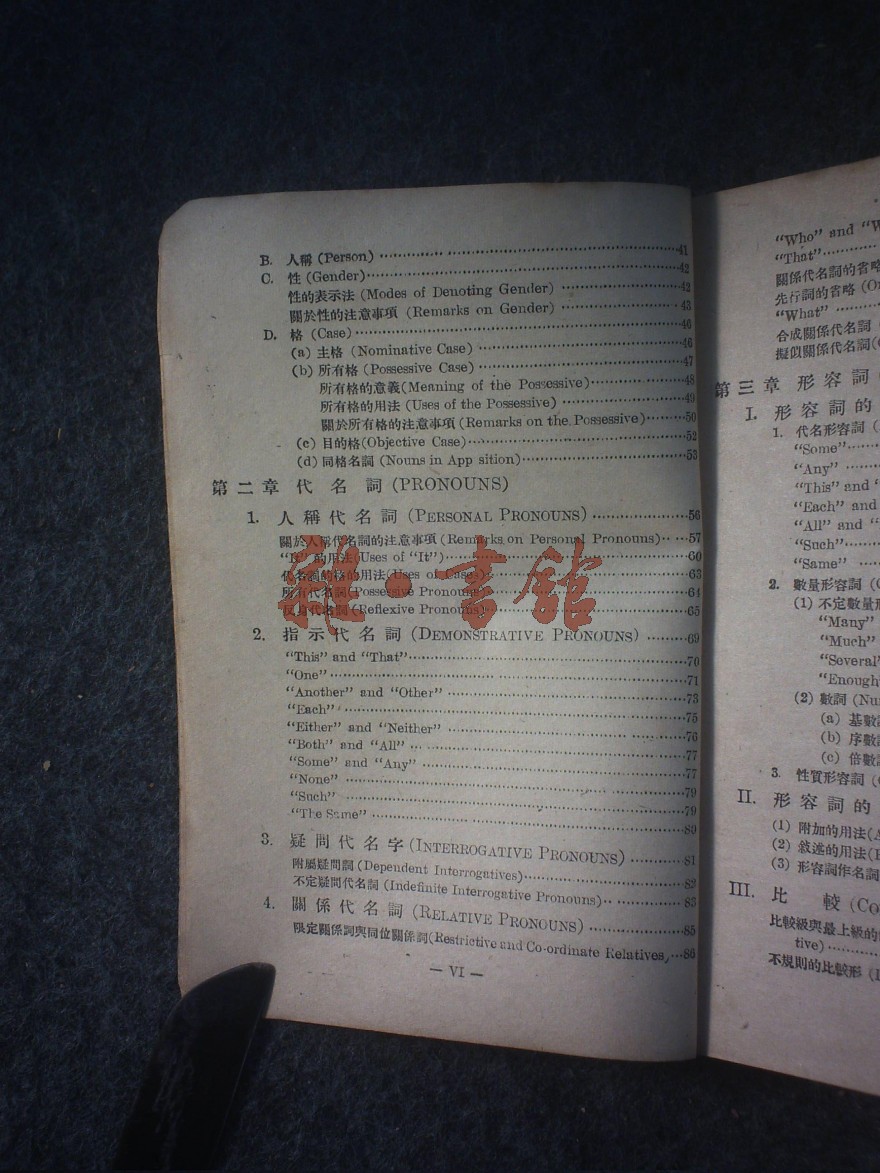 B. 人稱 (Person) ……41
C. 性 (Gender)……42
性的表示法 (Modes of Denoting Gender) ……42
關於性的注意事項 (Remarks on Gender) ……43
D. 格 (Case)……46
(a) 主格 (Nominative Case) ……46
(b) 所有格 (Possessive Case) ……47
所有格的意義(Meaning of the Possessive)……48
所有格的用法 (Uses of the Possessive) ……49
關於所有格的注意事項 (Remarks on the Possessive)……50
(c) 目的格(Objective Case)……52
(d) 同格名詞 (Nouns in App sition)……53
第二章 代名詞 (PRONOUNS)
1. 人稱代名詞 (PERSONAL PRONOUNS) ……56
關於人稱代名詞的注意事項 (Remarks on Personal Pronouns)……57
"It" 的用法(Uses of "It")……60
代名詞的格的用法(Uses of Cases)……63
所有代名詞(Possessive Pronouns)……64
反身代名詞(Reflexive Pronouns)……65
2. 指示代名詞 (DEMONSTRATIVE PRONOUNS) ……69
"This" and "That"……70
"One"……71
"Another" and "Other" ……73
"Each"……75
"Either" and "Neither" ……76
"Both" and "All" ……77
"Some" and "Any" ……77
"None" ……79
"Such" ……79
"The Same" ……80
3. 疑問代名字 (INTERROGATIVE PRONOUNS) ……81
附屬疑問詞 (Dependent Interrogatives)……82
不定疑問代名詞 (Indefinite Interrogative Pronouns)……83
4. 關係代名詞 (RELATIVE PRONOUNS) ……85
限定關係詞與同位關係詞(Restrictive and Co-ordinate Relatives,……86
— VI —
"Who" and "W
"That"……
關係代名詞的省略
先行詞的省略 (O
"What" ……
合成關係代名詞 (
擬似關係代名詞(
第三章 形容詞
I. 形容詞的
1. 代名形容詞 (
"Some"……
"Any" ……
"This" and "
"Each" and
"All" and "
"Such"……
"Same" ……
2. 數量形容詞 (
(1) 不定數量形
"Many"
"Much"
"Several"
"Enough
(2) 數詞 (Nu
(a) 基數
(b) 序數
(c) 倍數
3. 性質形容詞 (
II. 形容詞的
(1) 附加的用法(A
(2) 敘述的用法(
(3) 形容詞作名詞
III. 比較 (Co
比較級與最上級的
tive)……
不規則的比較形 (I
書館